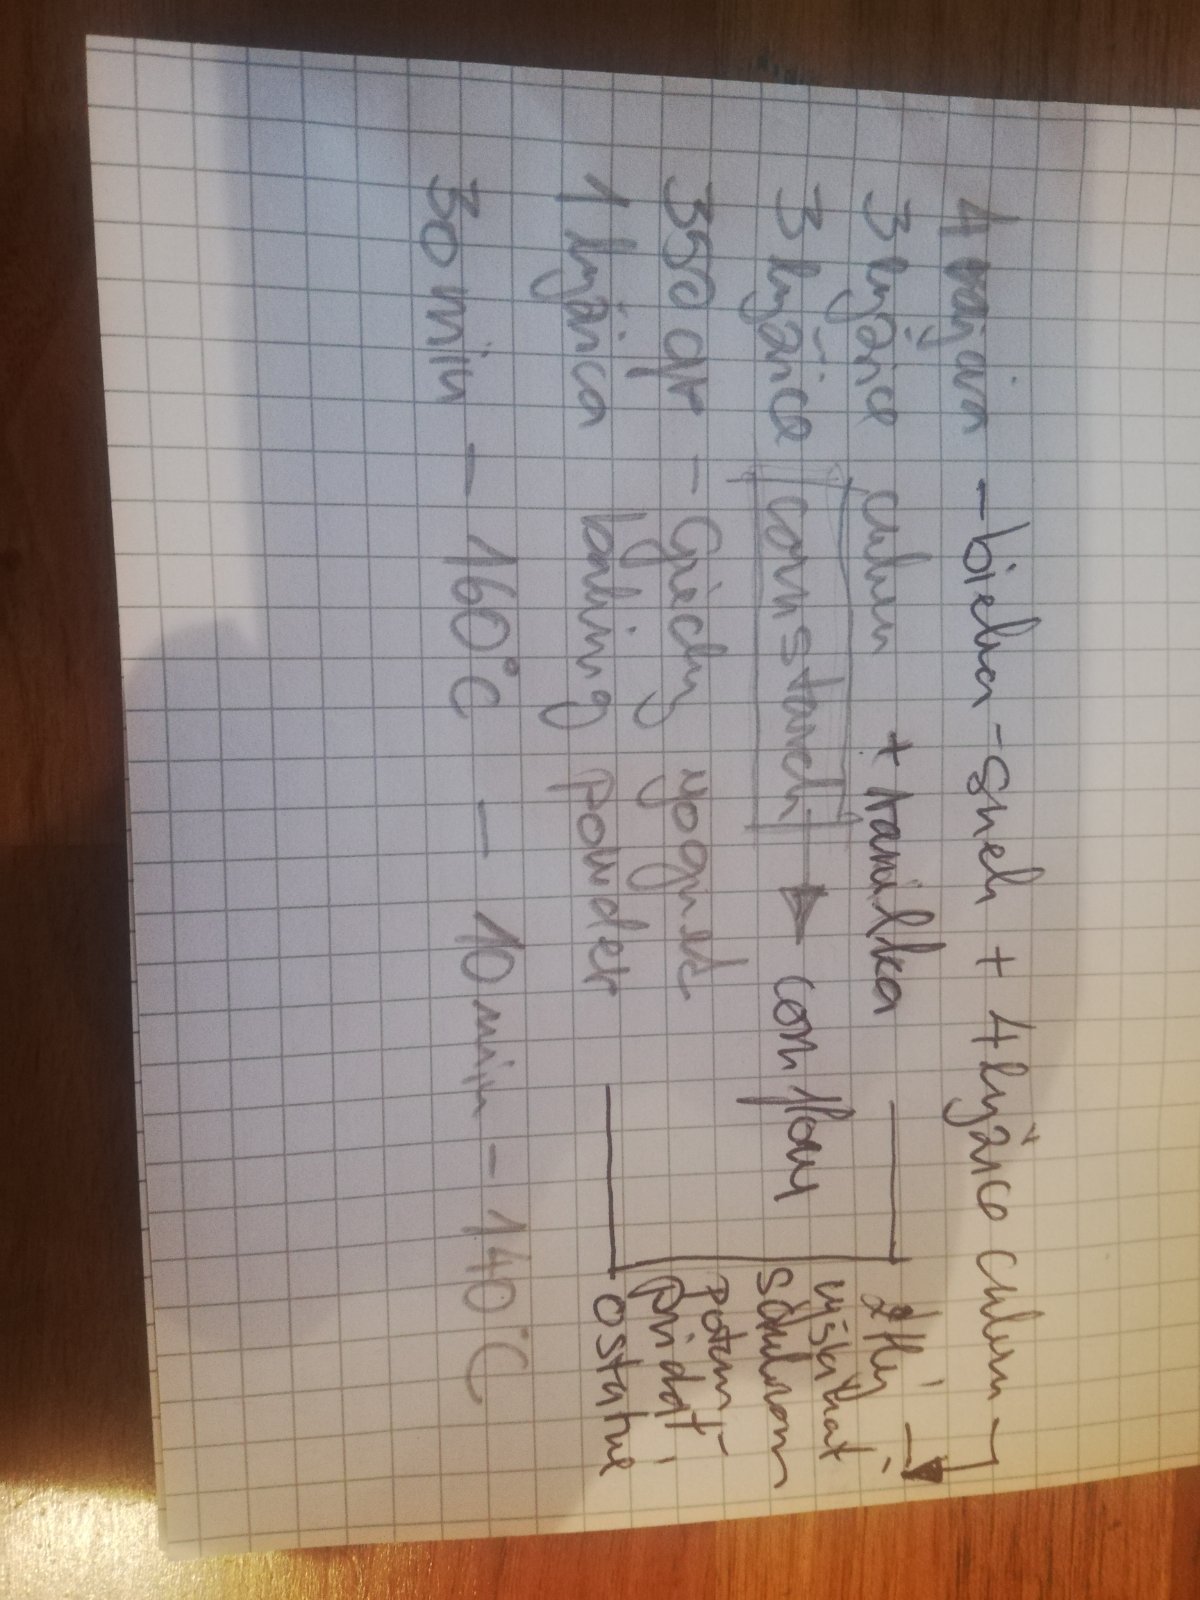 4 vajcia - bielka - sneh + 4 lyžice cukru
3 lyžice cukru + vanilka
3 lyžice corn starch → corn flour
350 gr - Grécky yogurt
1 lyžica baking powder
30 min - 160°C - 10 min - 140°C
žĺtky
vyšľahať
s cukrom
potom
pridať
ostatné